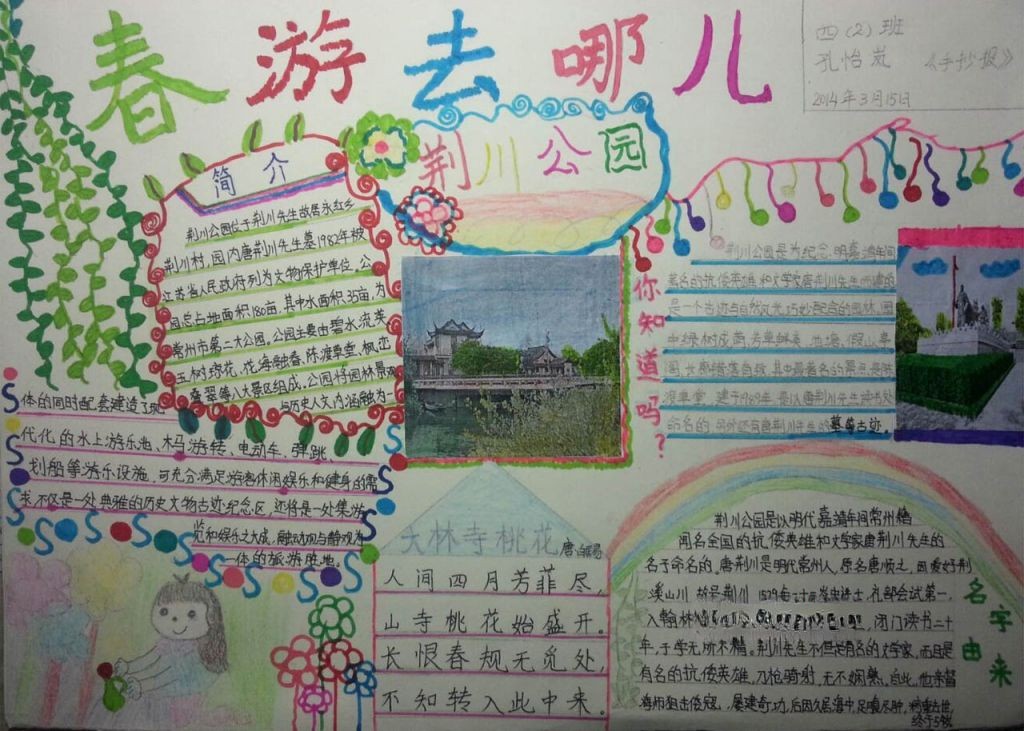 春游去哪儿
四（2）班
孔怡岚 《手抄报》
2014年3月15日
荆川公园
简介
荆川公园位于荆川先生故居永红乡
荆川村，园内唐荆川先生墓1982年被
江苏省人民政府列为文物保护单位。公
园总占地面积180亩，其中水面积35亩，为
常州市第二大公园。公园主要由碧水流芙
玉树琼花、花海融春、陈渡草堂、枫恋
等八大景区组成。公园将园林景观
与历史人文内涵融为一
体的同时配套建造了现
代化的水上游乐池、木马游转、电动车、弹跳、
划船等游乐设施，可充分满足游客休闲娱乐和健身的需
求，不仅是一处典雅的历史文物古迹纪念区，还将是一处集游
览和娱乐之大成，融动观与静观为
一体的旅游胜地。
你知道吗？
荆川公园是为纪念明嘉靖年间
著名的抗倭英雄和文学家唐荆川先生而建的
是一个古迹与自然风光巧妙融合的园林，园
中绿树成茵，芳草鲜美，池海、假山、亭
阁、长廊错落有致，其中最著名的景点是陈
渡草堂，建于1989年，是以唐荆川先生读书处
命名的，另外还有唐荆川先生的墓等古迹。
大林寺桃花 唐·白居易
人间四月芳菲尽，
山寺桃花始盛开。
长恨春规无觅处，
不知转入此中来。
名字由来
荆川公园是以明代嘉靖年间常州籍
闻名全国的抗倭英雄和文学家唐荆川先生的
名子命名的。唐荆川是明代常州人，原名唐顺之，因爱好荆
溪山川，故号荆川。1529年
礼部会试第一，
入翰林
闭门读书二十
年，于学无所不精。荆川先生不但是有名的文学家，而且是
有名的抗倭英雄，刀枪骑射，无不娴熟。
屡建奇功，后因久居海中，足腹尽肿，